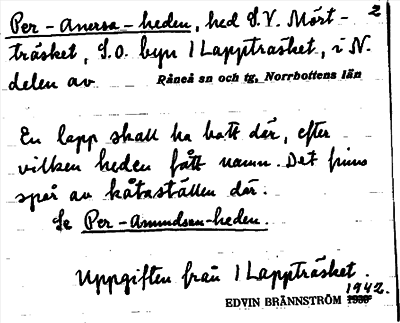 Per-Anersa-heden, hed S.V. Mört- 2
träsket, S.O. byn 1 Lappträsket, i N.
delen av Råneå sn och tg, Norrbottens län
En lapp skall ha haft där, efter
vilken heden fått namn. Det finns
spår av kåtaställen där.
Se Per-Amundsen-heden.
Uppgiften från 1 Lappträsket.
1942.
EDVIN BRÄNNSTRÖM 1930